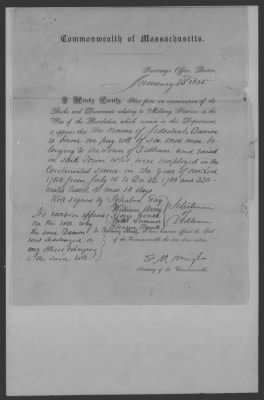 Commonwealth of Massachusetts.
Secretary's Office, Boston,
January 1855
I Hereby Certify, That from an examination of the
Books and Documents relating to Military Services in the
War of the Revolution which remain in this Department,
it appears that the name of Damon
is borne on pay roll of six mos men be
longing to the Town of Dedham and raised
in said Town who were employed in the
Continental service in the year of our Lord
1780 from July 15 to Dec 22 1780 and 230
miles travel 5 mos 18 days
Roll signed by Gay
William Avery
Gould
Selectmen
of
Dedham
No reason appears
on the roll why
the said Damon
was discharged or
any others belonging
to the said roll.
In Testimony Whereof, I have hereunto affixed the Seal
of the Commonwealth the date above written.
E. M. Wright
Secretary of the Commonwealth.